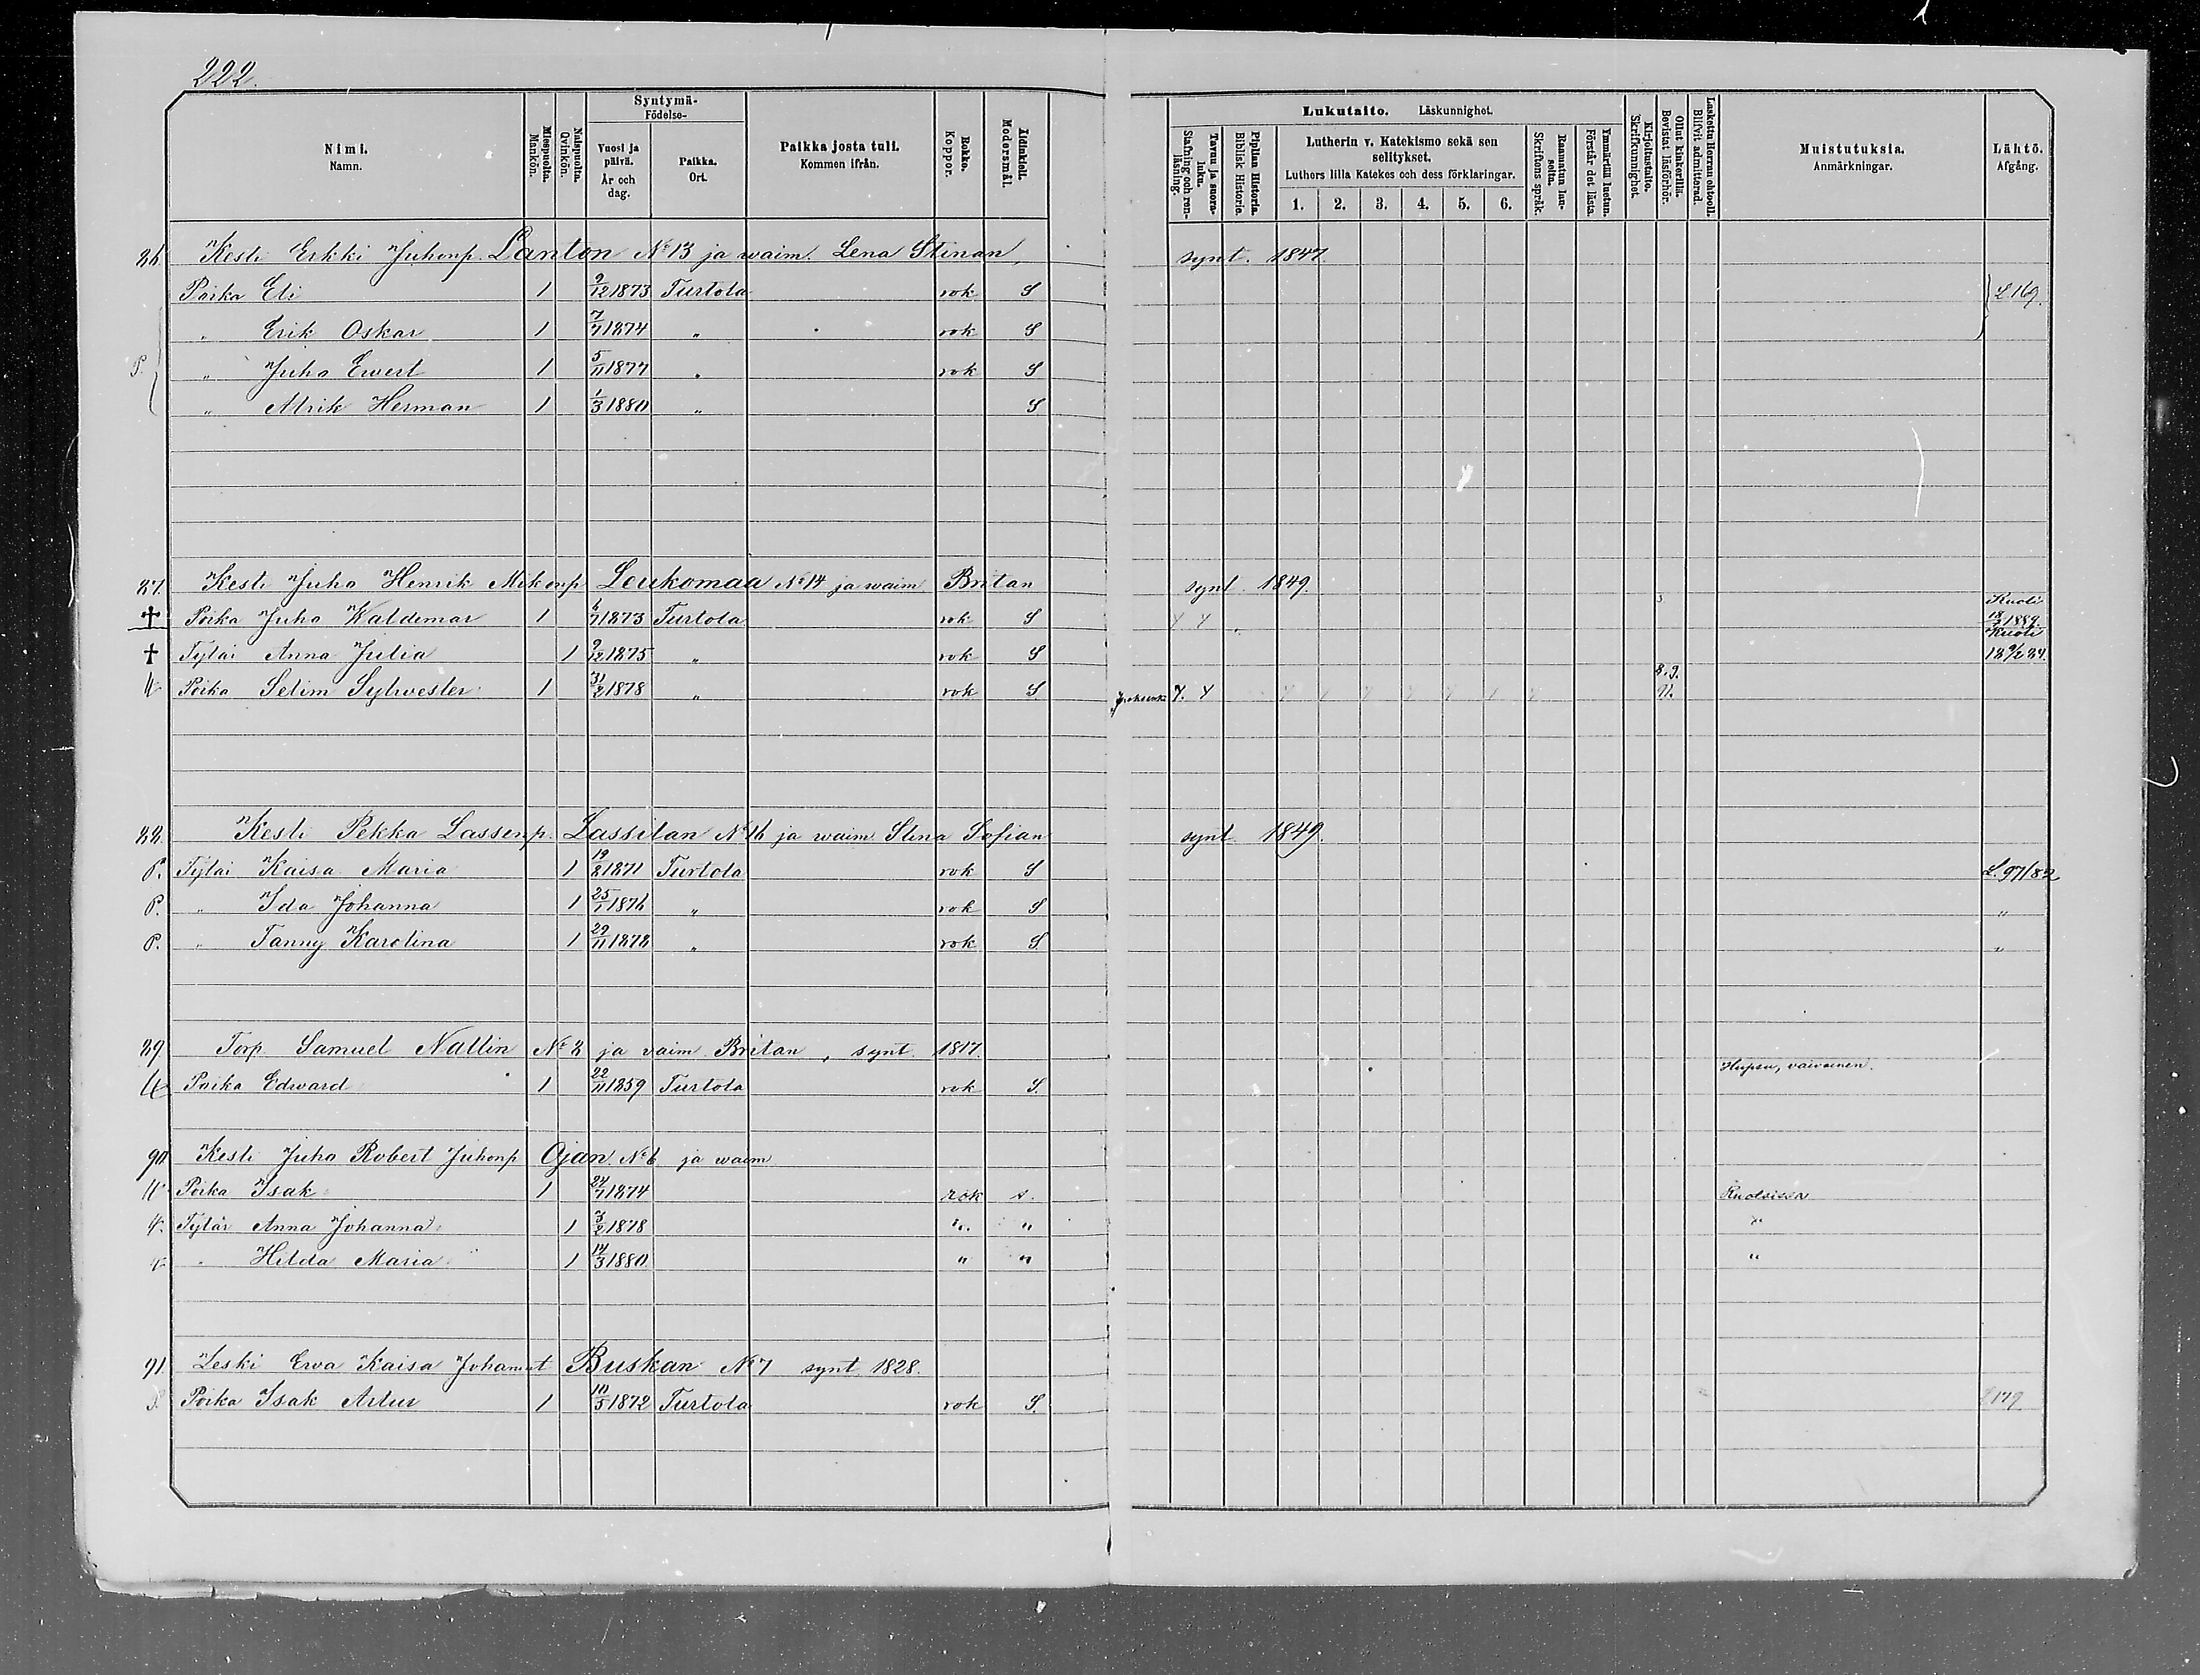 222.
Nimi. Namn.
Miespuolta. Mankön.
Naispuolta. Qvinkön.
Syntymä- Födelse-
Vuosi ja päivä. År och dag.
Paikka. Ort.
Paikka josta tuli. Kommen ifrån.
Rokko. Koppor.
Äidinkieli. Modersmål.
Lukutaito. Läskunnighet.
Tavuu ja suora-luku. Stafning och ren-läsning.
Piplian Historia. Biblisk Historie.
Lutherin v. Katekismo sekä sen selitykset.
Luthers lilla Katekes och dess förklaringar.
1. 2. 3. 4. 5. 6.
Raamatun lau-seita. Skriftens språk.
Ymmärtää luetun. Förstår det lästa.
Kirjoitustaito. Skrifkunnighet.
Ollut kinkerillä. Bevistat läsförhör.
Laskettu Herran ehtooll. Blifvit admitterad.
Muistutuksia. Anmärkningar.
Lähtö. Afgång.
86. Kesti Erkki Juhonp. Lanton No 13 ja waim. Lena Stinan, synt. 1847
Poika Eli 1 9/12 1873 Turtola rok S L 169.
" Erik Oskar 1 7/7 1874 " rok S
P. " Juho Ewert 1 5/11 1877 " rok S
" Alrik Herman 1 1/3 1880 " S
87. Kesti Juho Henrik Mikonp Leukomaa No 14 ja waim Britan synt. 1849.
† Poika Juho Waldemar 1 6/7 1873 Turtola rok S Kuoli 18/3 1889.
† Tytär Anna Julia 1 9/12 1875 " rok S Kuoli 18 9/2 84.
Poika Selim Sylwester 1 31/2 1878 " rok S.
88. Kesti Pekka Lassenp. Lassilan No 16 ja waim Stina Sofian synt 1849.
P. Tytär Kaisa Maria 1 19/8 1871 Turtola rok S L. 97/82
P. " Ida Johanna 1 25/1 1876 " rok S "
P. " Fanny Karolina 1 29/11 1878 " rok S. "
89 Torp. Samuel Nallin No 2 ja vaim Britan, synt. 1817.
Poika Edward 1 22/11 1859 Turtola rok S. Hupsu, vaivainen.
90 Kesti Juho Robert Juhonp Ojan No 6 ja waim
Poika Isak 1 24/7 1874 rok s. Ruotsissa
Tytär Anna Johanna 1 3/2 1878 " " "
" Hilda Maria 1 14/3 1880 " " "
91. Leski Ewa Kaisa Johant Buskan No 7 synt. 1828.
Poika Isak Artur 1 10/5 1872 Turtola rok S. L 179